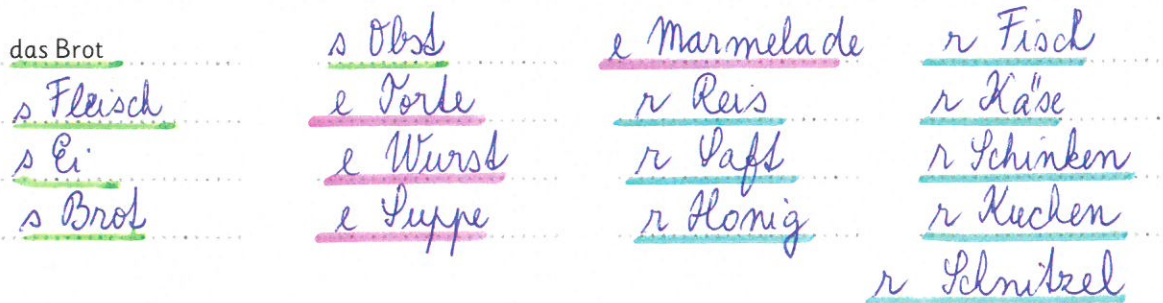 das Brot
s Fleisch
s Ei
s Brot
s Obst
e Torte
e Wurst
e Suppe
e Marmelade
r Reis
r Saft
r Honig
r Fisch
r Käse
r Schinken
r Kuchen
r Schnitzel